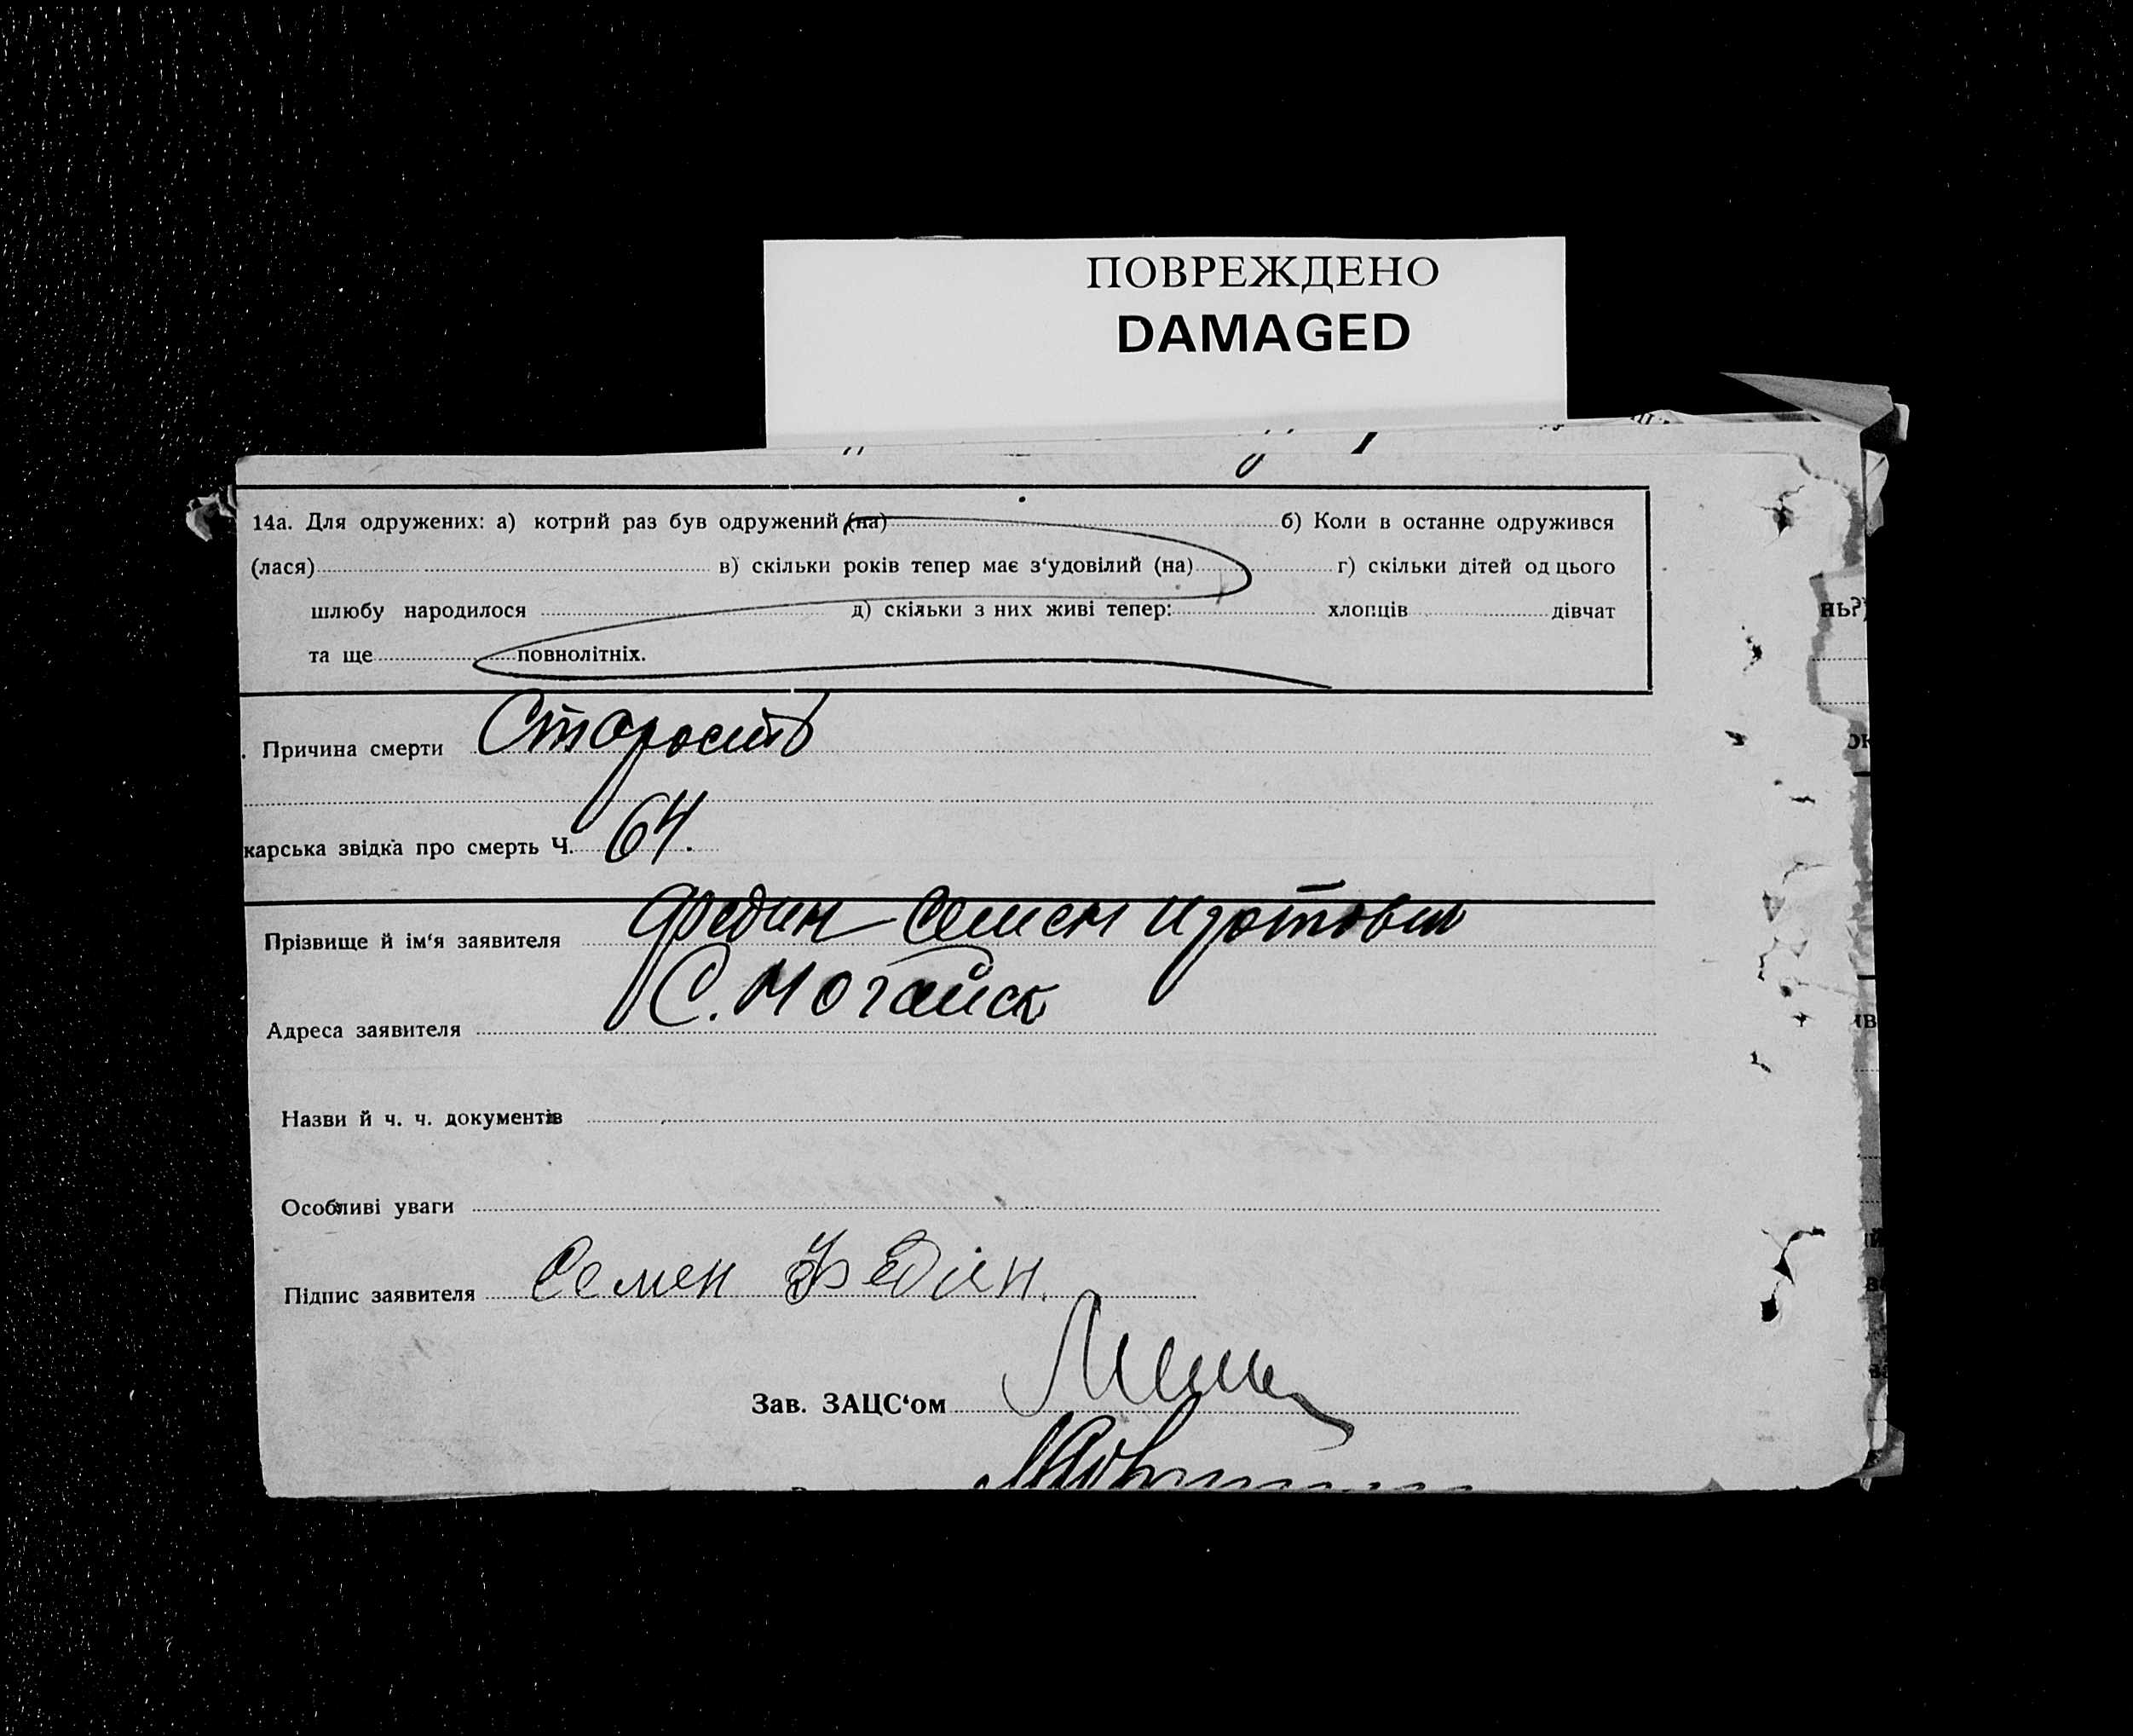 ПОВРЕЖДЕНО
DAMAGED
14а. Для одружених: а) котрий раз був одружений (на) б) Коли в останне одружився
(лася) в) скільки років тепер має з‘удовілий (на) г) скільки дітей од цього
шлюбу народилося д) скільки з них живі тепер: хлопців дівчат
та ще повнолітніх.
. Причина смерти Старость
карська звідка про смерть Ч. 64.
Прізвище й ім‘я заявителя Федин Семен Изотович
С. Ногайск
Адреса заявителя
Назви й ч. ч. документів
Особливі уваги
Підпис заявителя Семен Федін.
Зав. ЗАЦС‘ом